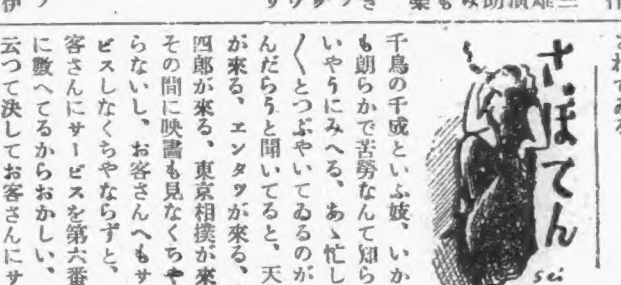 されてゐる
さぼてん
sei
千鳥の千成といふ妓、いか
も朗らかで苦勞なんて知ら
いやうにみへる、あゝ忙し
〱とつぶやいてゐるのが
んだらうと聞いてると、天
が來る、エンタツが來る、
四郎が來る、東京相撲が來
その間に映畫も見なくちや
らないし、お客さんへもサ
ビスしなくちやならずと、
客さんにサービスを第六番
に數へてるからおかしい、
云つて決してお客さんにサ